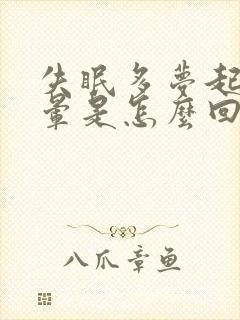 失眠多夢起
暈是怎麼回
八爪章鱼